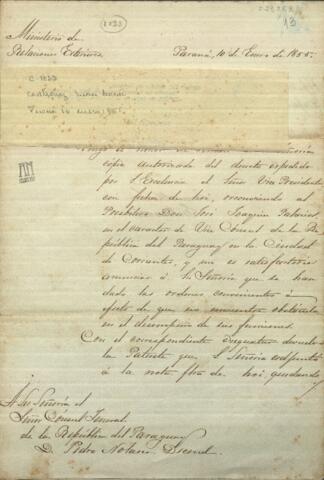 Ministerio de
Relaciones Exteriores
Paraná, 10 de Enero de 1855.
13
copia autorizada del decreto expedido
por S. Excelencia el Señor Vice Presidente
con fecha de hoi, reconociendo al
Presbítero Don José Joaquin
en el caracter de Vice Cónsul de la Re
pública del Paraguay en la Ciudad
de Corrientes, y me es satisfactorio
anunciar á S. Señoria que se han
dado las ordenes convenientes á
efecto de que no encuentre obstáculo
en el desempeño de sus funciones.
Con el correspondiente devuelvo
la Patente que S. Señoria adjuntó
á la nota fha. de hoi, quedando
A Su Señoria el
Señor Cónsul General
de la República del Paraguay
D. Pedro Nolasco Decoud.